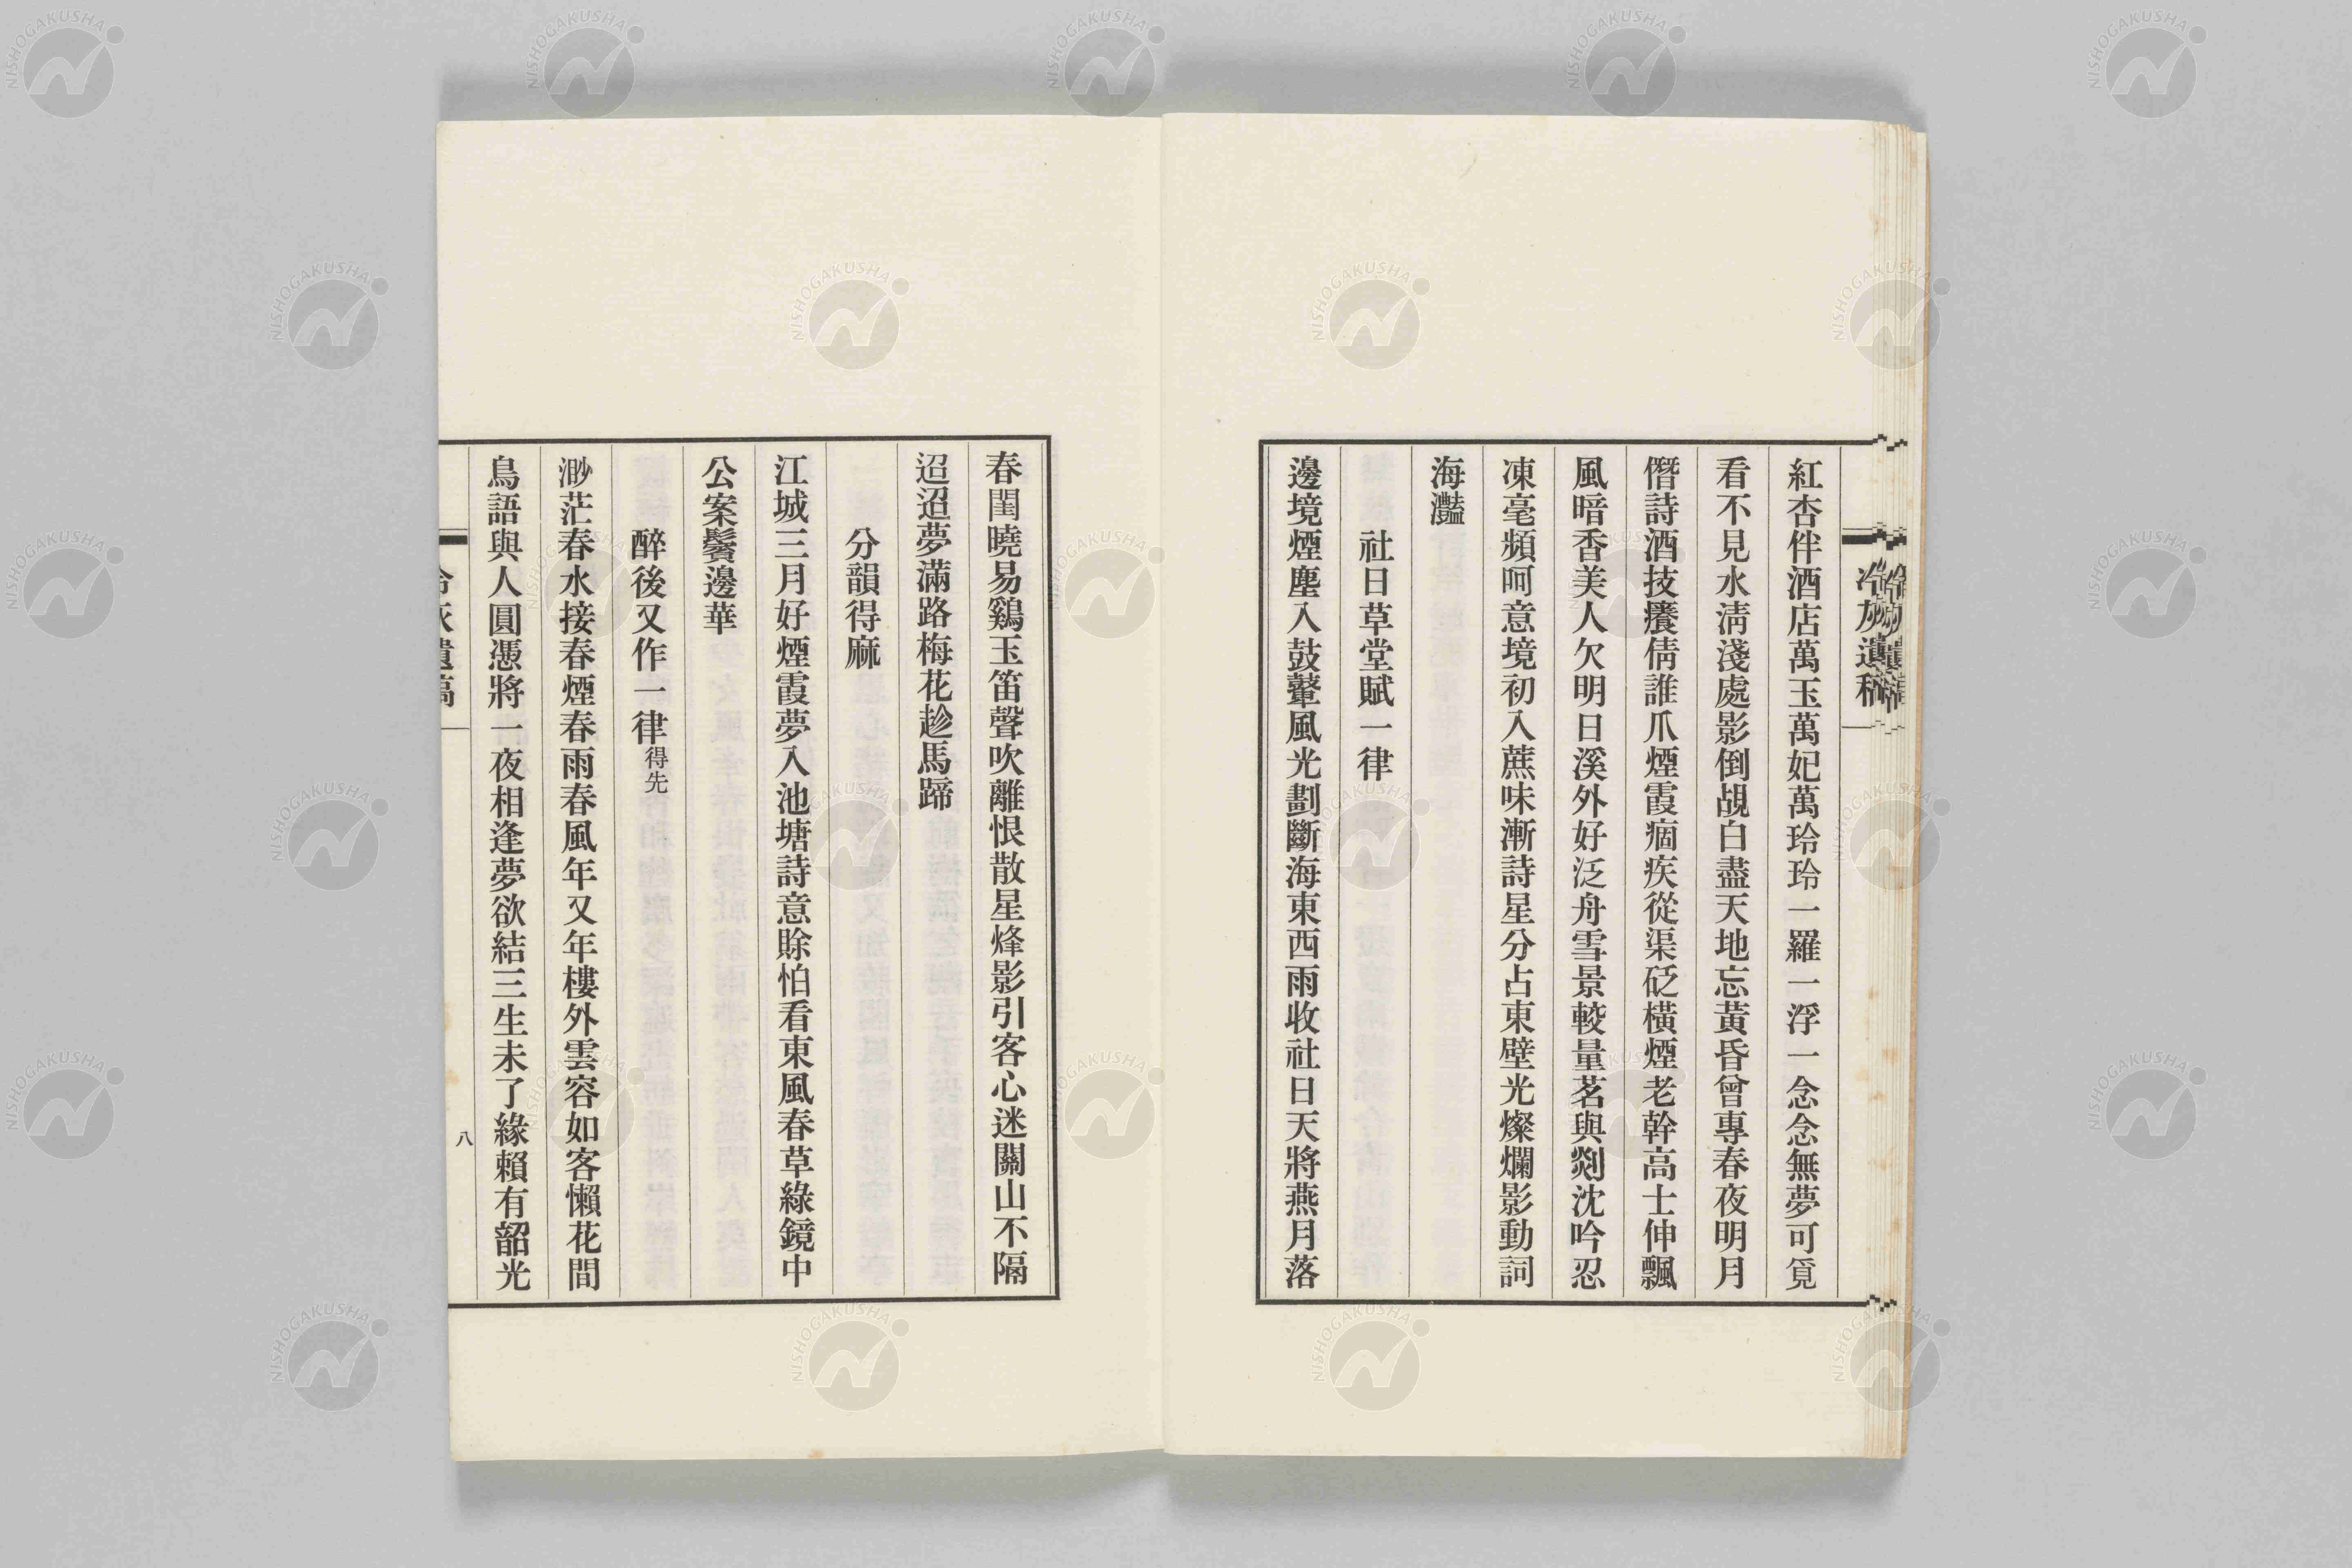 冷灰遺稿
紅杏伴酒店萬玉萬妃萬玲玲一羅一浮一念念無夢可覓
看不見水淸淺處影倒覘白盡天地忘黃昏曾專春夜明月
僭詩酒技癢倩誰爪煙霞痼疾從渠砭橫煙老幹高士伸飄
風暗香美人欠明日溪外好泛舟雪景較量茗與剡沈吟忍
凍毫頻呵意境初入蔗味漸詩星分占東壁光燦爛影動詞
海灩
社日草堂賦一律
邊境煙塵入鼓鼙風光劃斷海東西雨收社日天將燕月落
春閨曉易鷄玉笛聲吹離恨散星烽影引客心迷關山不隔
迢迢夢滿路梅花趁馬蹄
分韻得麻
江城三月好煙霞夢入池塘詩意賒怕看東風春草綠鏡中
公案鬢邊華
醉後又作一律得先
渺茫春水接春煙春雨春風年又年樓外雲容如客懶花間
鳥語與人圓憑將一夜相逢夢欲結三生未了緣賴有韶光
八
NISHOGAKUSHA